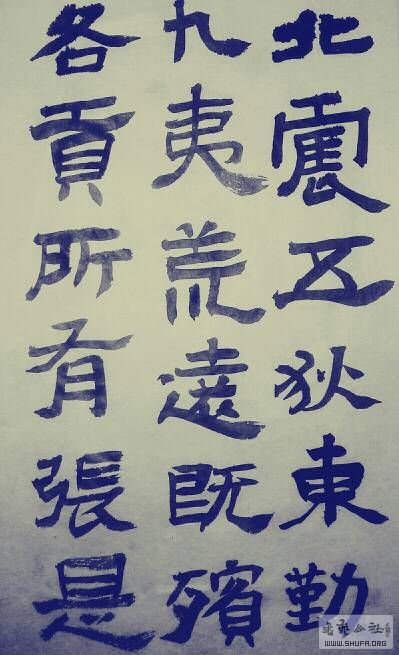 北震五狄東勤
九夷荒遠既殯
各貢所有張是
公社
WWW.SHUFA.ORG